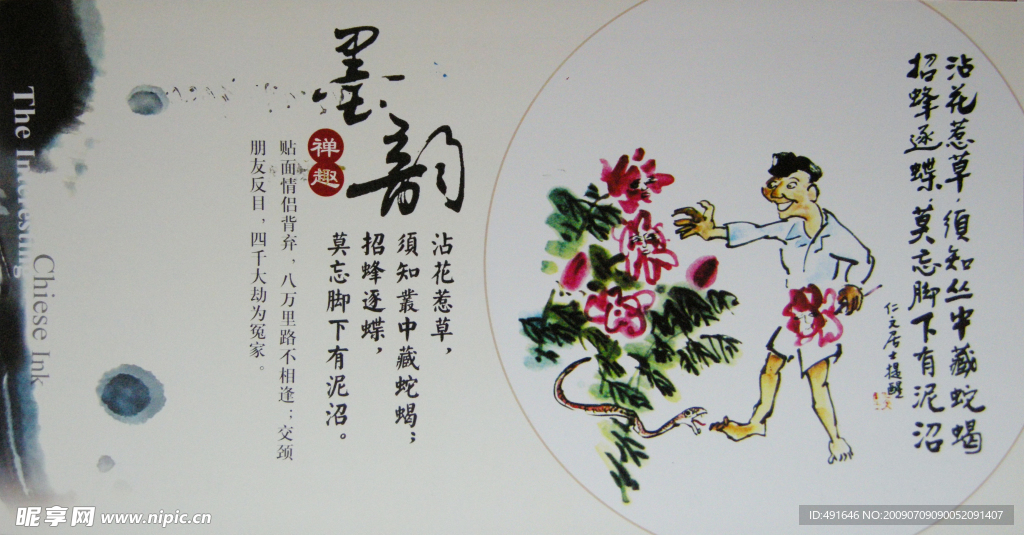 沾花惹草，須知丛中藏蛇蝎
招蜂逐蝶，莫忘脚下有泥沼
仁文居士提醒
墨韵
禅趣
沾花惹草，
須知叢中藏蛇蝎；
招蜂逐蝶，
莫忘脚下有泥沼。
贴面情侣背弃，八万里路不相逢；交颈
朋友反目，四千大劫为冤家。
The Interesting
Chiese Ink
昵享网 www.nipic.cn
ID:491646 NO:20090709090052091407